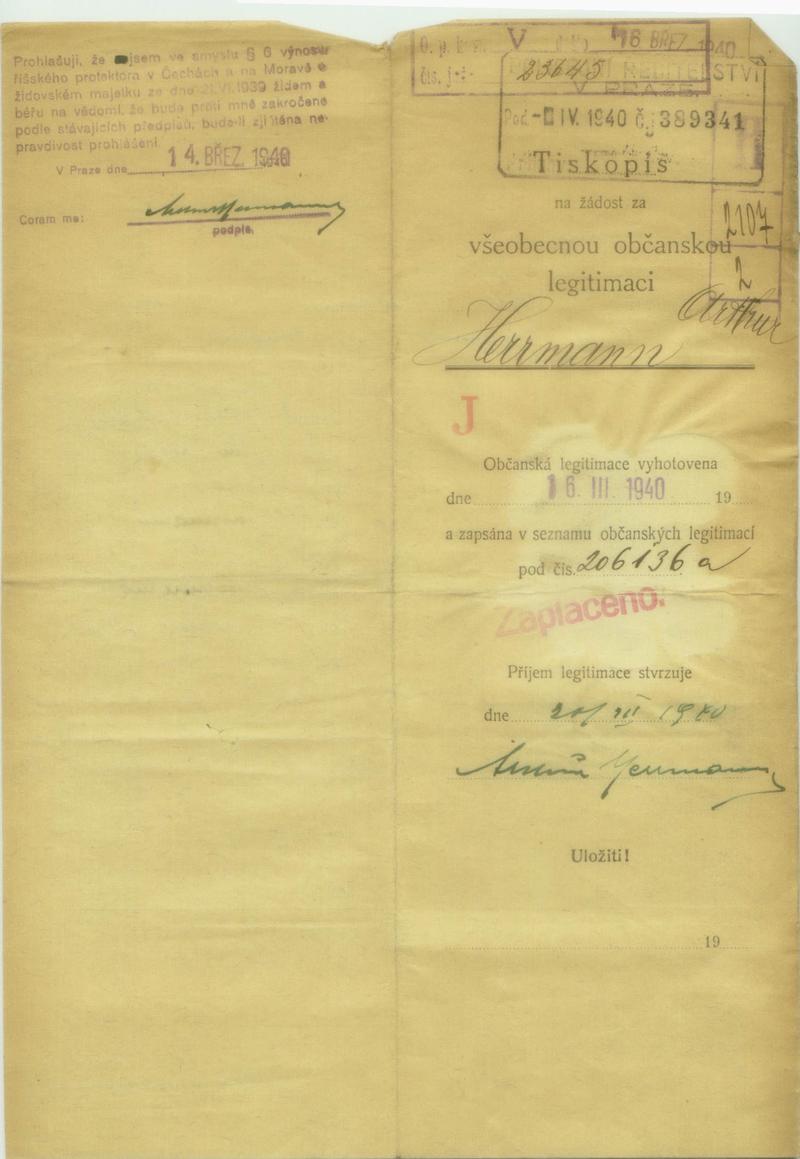 Prohlašuji, že jsem ve smyslu § 6 výnosu
říšského protektora v Čechách a na Moravě o
židovském majetku ze dne 21.VI.1939 židem a
béřu na vědomí, že bude proti mně zakročeno
podle stávajících předpisů, bude-li zjištěna ne-
pravdivost prohlášení.
V Praze dne 14. BŘEZ. 1940
Coram me:
podpis.
V 16 BŘEZ. 1940
čís. j.
23645
ŘEDITELSTVÍ
V PRAZE
Pod. IV. 1940 č. 389341
Tiskopis
na žádost za
2107
všeobecnou občanskou
2
legitimaci
Herrmann Arthur
J
Občanská legitimace vyhotovena
dne 16. III. 1940 19
a zapsána v seznamu občanských legitimací
pod čís. 206136 a
Zaplaceno.
Příjem legitimace stvrzuje
dne 20/III 1940
Herrmann
Uložiti!
19